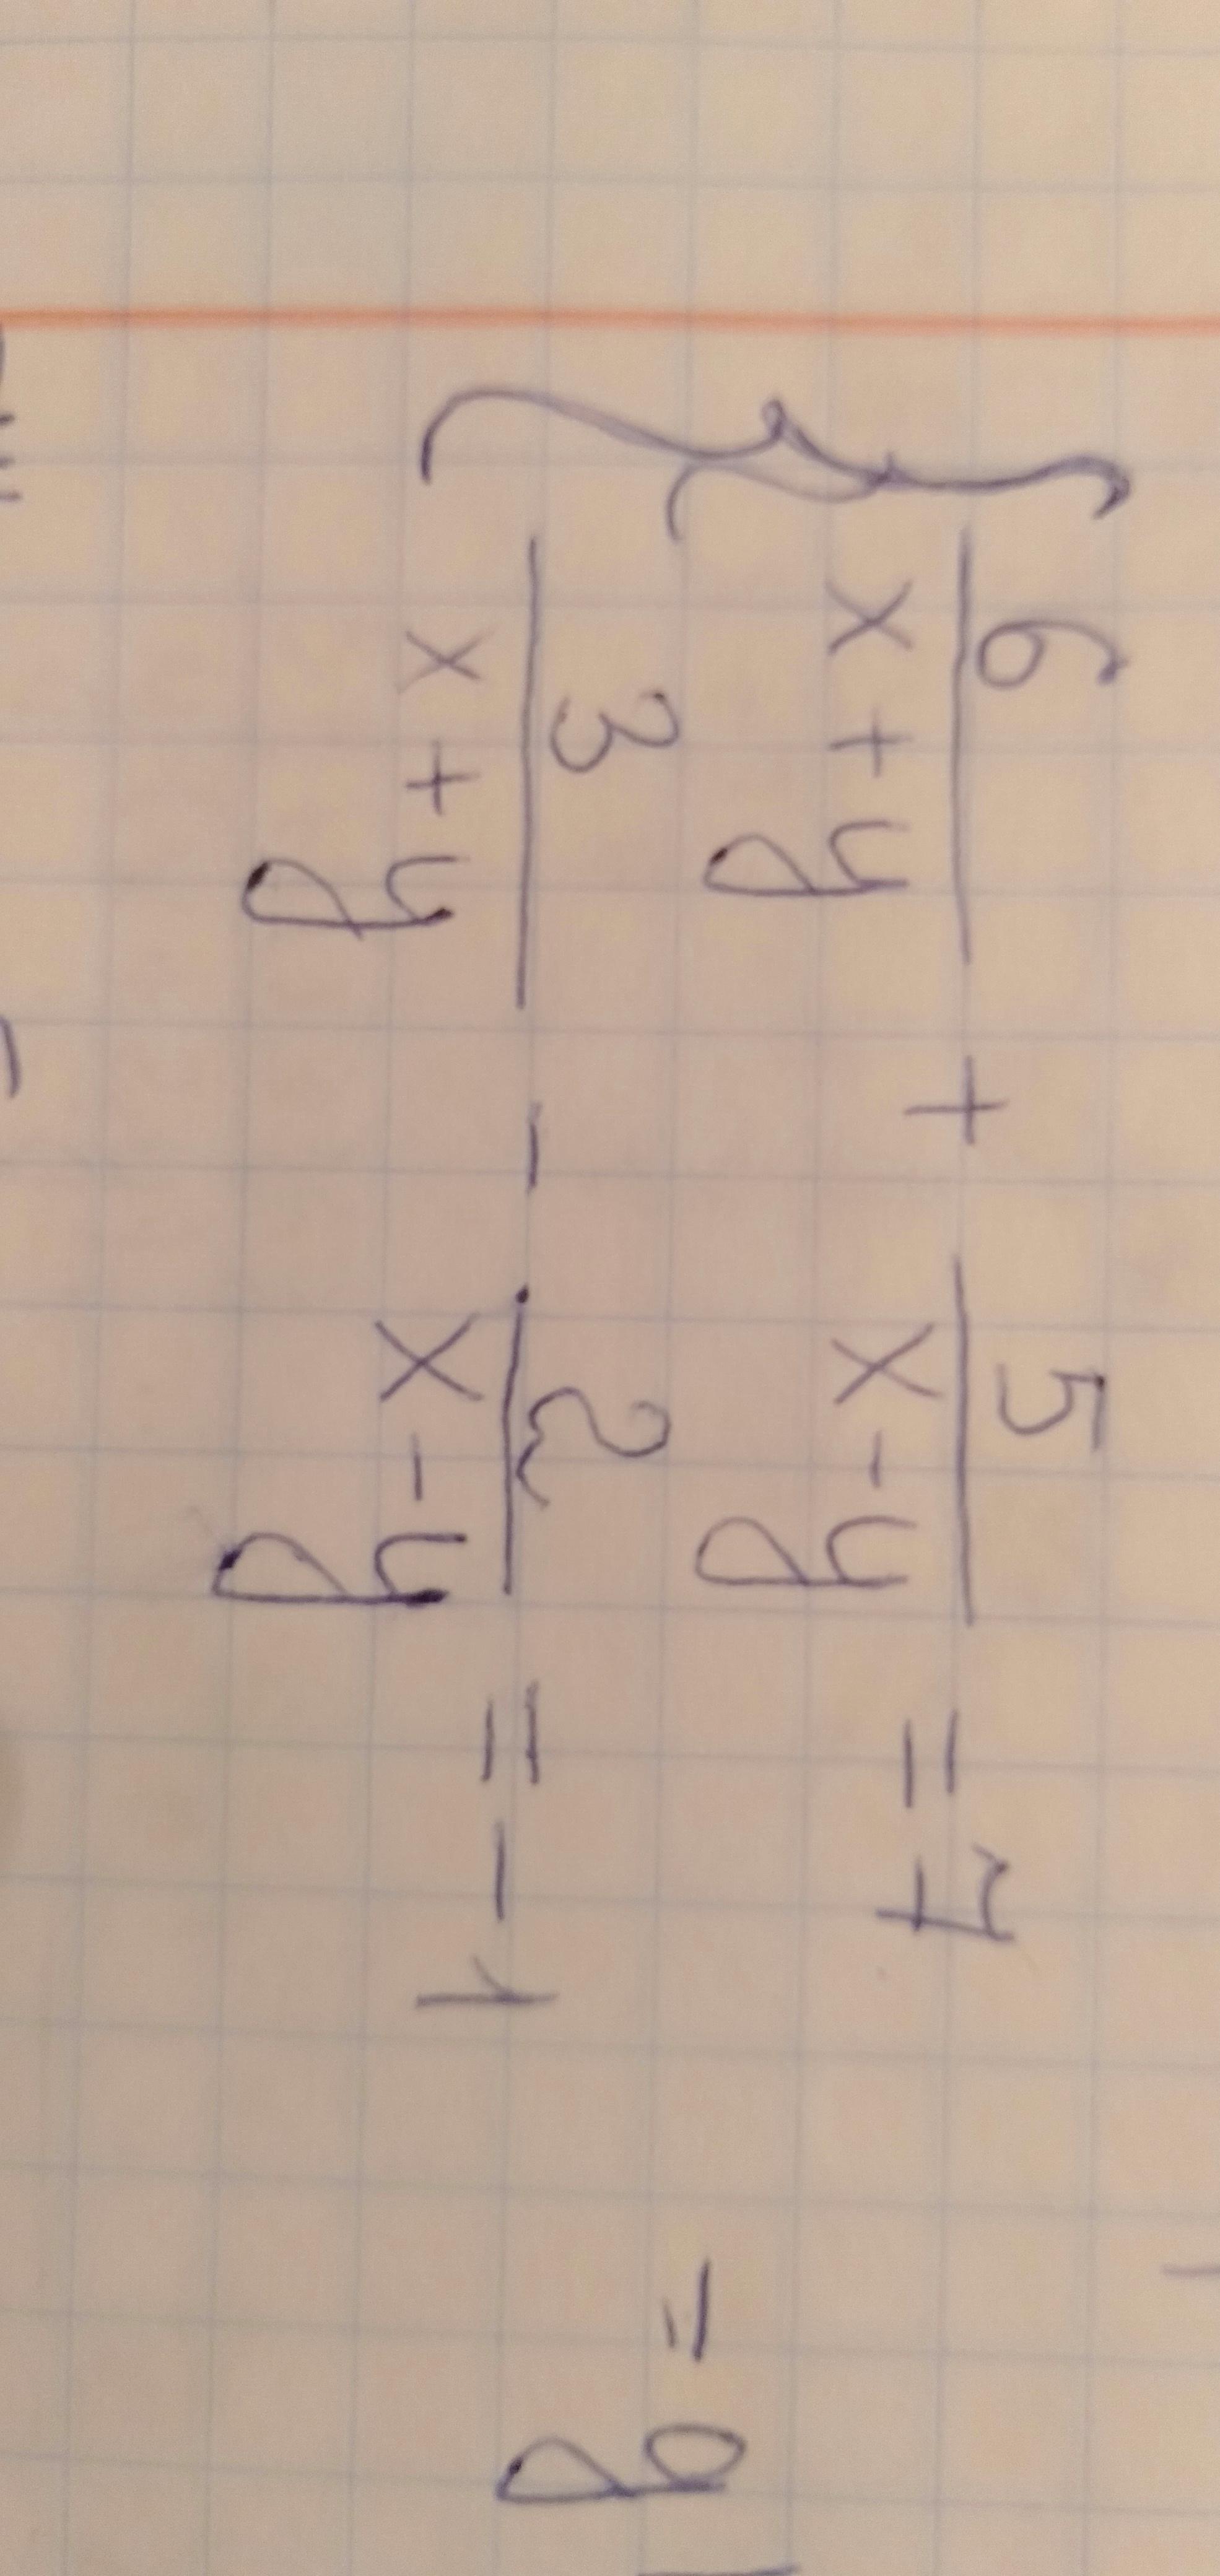 6/(x+y) + 5/(x-y) = 7
3/(x+y) - 2/(x-y) = -1
= 9